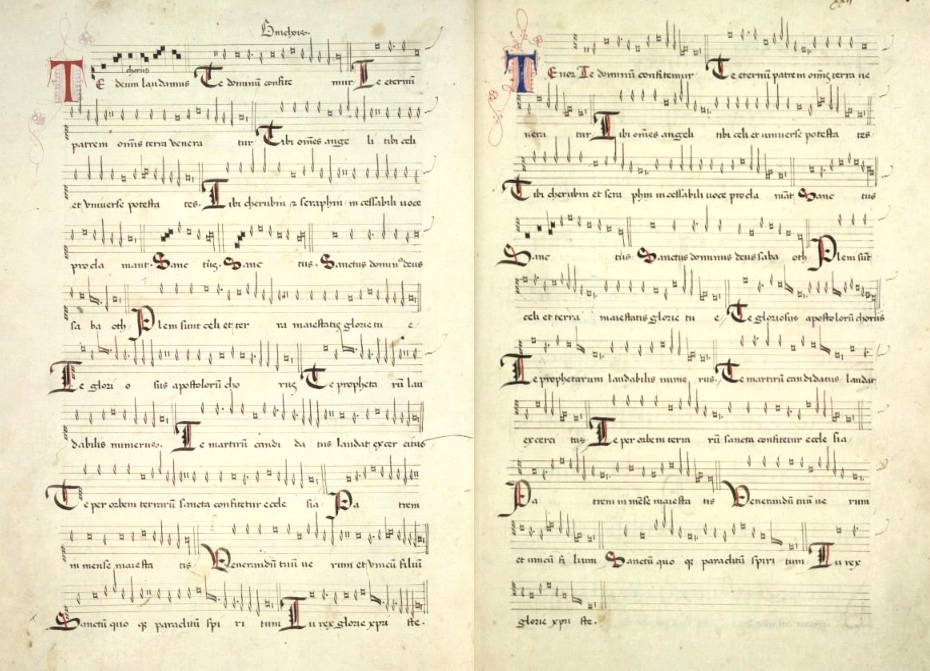 Binchois.
chorus
Te deum laudamus Te dominū confite mur Te eternū
patrem om̄is terra venera tur Tibi om̄es ange li tibi celi
et vniuerse potesta tes. Tibi cherubin ⁊ seraphin in cessabili uoce
procla mant. Sanc tus. Sanc tus. Sanctus dominꝰ deus
sa ba oth Pleni sunt celi et ter ra maiestatis glorie tu e
Te glori o sus apostolorū cho rus Te propheta rū lau
dabilis numerus. Te martirū candi da tus laudat exer citus
Te per orbem terrarū sancta confitetur eccle sia Pa trem
in mense maiesta tis Venerandū tuū ve rum et vnicū filiū
Sanctū quo qꝫ paraclitū spi ri tum Tu rex glorie xpri ste.
Tenor Te dominū confitemur Te eternū patrem om̄is terra ve
nera tur Tibi om̄es angeli tibi celi et vniuerse potesta tes
Tibi cherubin et sera phin in cessabili uoce procla māt Sanc tus
Sanc tus Sanctus dominus deus saba oth Pleni sūt
celi et terra maiestatis glorie tu e Te gloriosus apostolorū chorus
Te prophetarum laudabilis nume rus. Te martirū candidatus laudat
exerci tus Te per orbem terra rū sancta confitetur eccle sia
Pa trem in mēse maiesta tis Venerandū tuū ve rum
et vnicū fi lium Sanctū quo qꝫ paraclitū spiri tum Tu rex
glorie xpri ste.